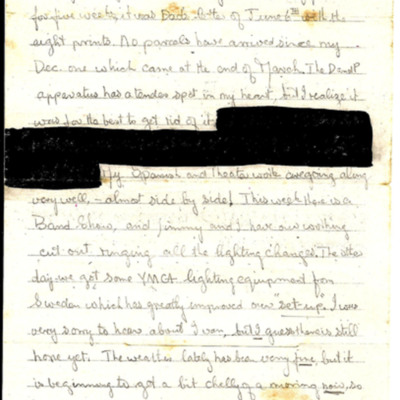 for five weeks, it was Dad's letter of June 6th with the
eight prints. No parcels have arrived since my
Dec. one which came at the end of March. The
apparatus has a tender spot in my heart, but I realize it
was for the best to get rid of it
My Spanish and Theatre work are going along
very well, - almost side by side! This week there is a
Band Show, and Jimmy and I have our working
cut out ringing all the lighting changes. The other
day we got some YMCA lighting equipment from
Sweden which has greatly improved our "set-up". I was
very sorry to hear about but I guess there is still
hope yet. The weather lately has been very fine, but it
is beginning to get a bit chilly of a morning now, so